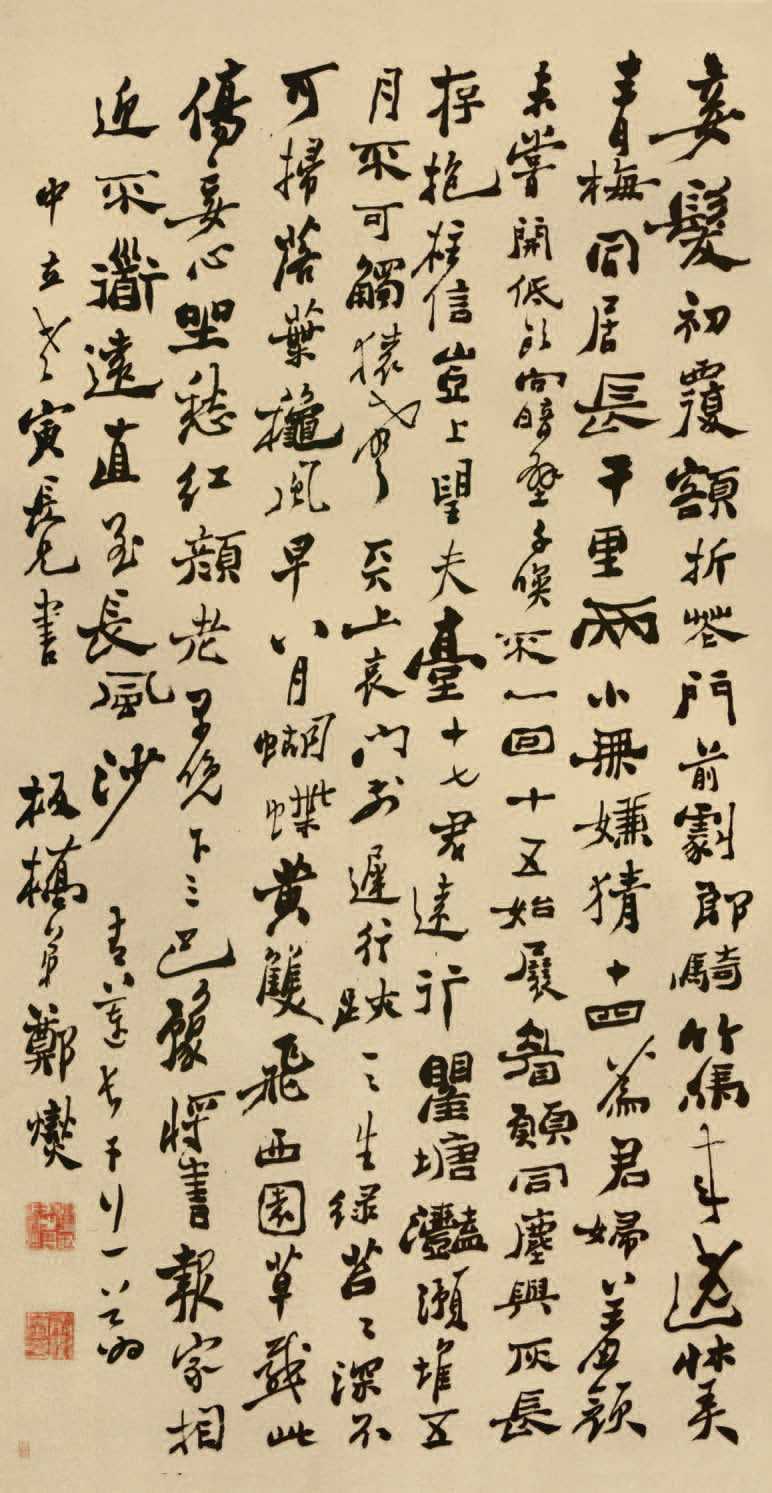 妾髮初覆額折花門前劇郎騎竹馬來遶牀弄
青梅同居長干里兩小無嫌猜十四為君婦羞顏
未嘗開低頭向暗壁千喚不一回十五始展眉願同塵與灰長
存抱柱信豈上望夫臺十七君遠行瞿塘灩澦堆五
月不可觸猿聲天上哀門前遲行跡一一生綠苔〻深不
可掃落葉秋風早八月蝴蝶黃雙飛西園草感此
傷妾心坐愁紅顏老早晚下三巴豫將書報家相
近不道遠直至長風沙
青蓮長干行一首為
中立老寅長兄書
板橋弟鄭燮